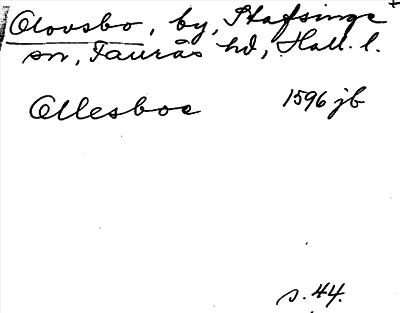 Olovsbo, by, Stafsinge +
sn, Faurås hd, Hall. l.
Ollesboe 1596 jb
s. 44.